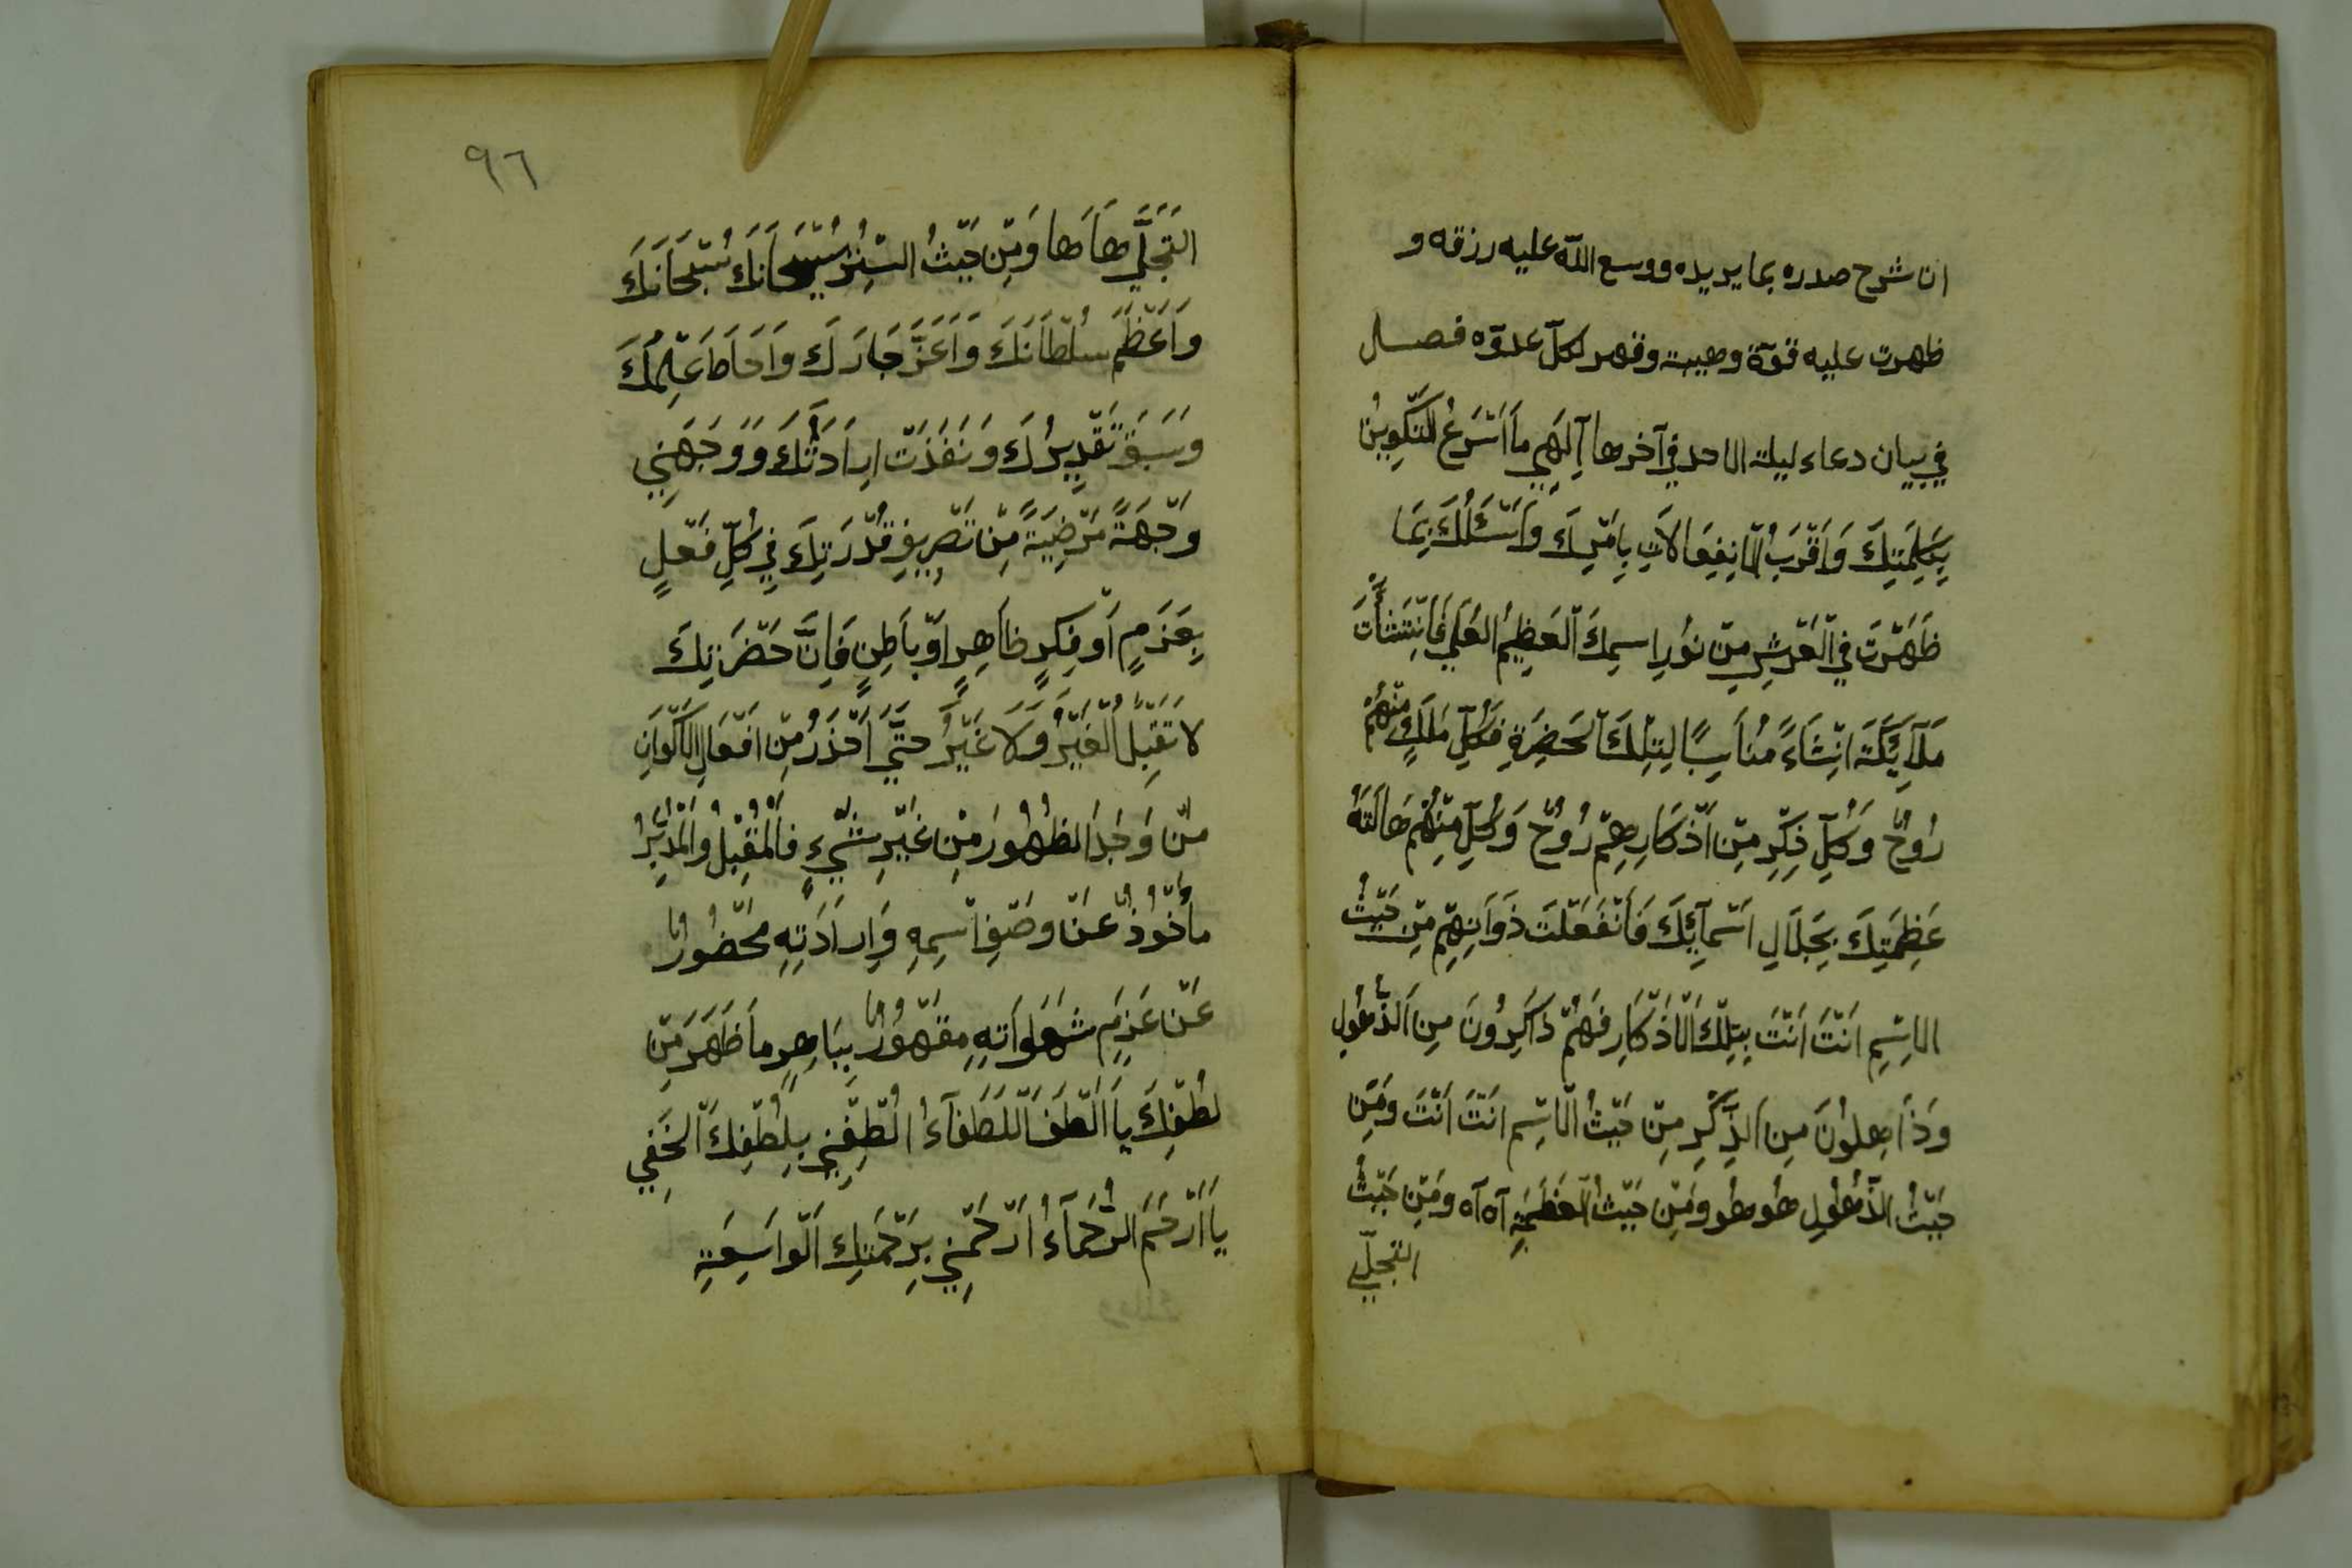 ان شرح صدره بما يريده ووسع الله عليه رزقه و
ظهرت عليه قوّة وهيبة وقهر لكلّ عدوّه فصل
في بيان دعاء ليلة الاحد في آخرها آِلَهِي مَا اَسْرَعُ التَّكْوِينُ
بِكَلِمَتِكَ وَاَقْرَبُ الْاِنْفِعَالَاتِ بِاَمْرِكَ وَاَسْئَلُكَ بِمَا
ظَهَرَتَ فِي الْعَرْشِ مِنْ نُورِ اسمِكَ الْعَظِيمُ العَلِي فَانْتَشَأَتْ
مَلَآئِكَةَ انْشَاءً مُنَاسِبًا لِتِلْكَ الْحَضْرَةِ فَكُلِّ مَلَكٍ مِنْهُمْ
رُوحٌ وَكُلِّ ذِكْرٍ مِنْ اَذْكَارِهِمْ رُوحٌ وَكُلِّ مِنْهُمْ هَالَتَهُ
عَظَمَتِكَ بِجَلَالِ اَسْمَآئِكَ فَانْفَعَلَتَ ذَوَاتِهِمْ مِنْ حَيْثُ
الاِسْمِ اَنْتَ اَنْتَ بِتِلْكَ الْاَذْكَارِ فَهُمْ ذَاكِرُونَ مِنَ الذُّهُولِ
وَذَاهِلُونَ مِنَ الذِّكْرِ مِنْ حَيْثُ الْاِسْمِ اَنْتَ اَنْتَ وَمِنْ
حَيْثُ الذُّهُولِ هُو هُو وَمِنْ حَيْثُ الْعَظَمَةِ آه آه وَمِنْ حَيْثُ
التجلّي
٩٦
التَّجَلِّي هَا هَا وَمِنْ حَيْثُ السِّتْرُ سُبْحَانَكَ سُبْحَانَكَ
وَاَعْظَمَ سُلْطَانَكَ وَاَعَزَّ جَارَكَ وَاَحَاطَ عِلْمُكَ
وَسَبَقَ تَقْدِيرُكَ وَنَفَذَتْ اِرَادَتُكَ وَوَجِّهْنِي
وِجْهَةً مَرْضِيَةً مِنْ تَصْرِيفِ قُدْرَتِكَ فِي كُلِّ فَعْلٍ
بِعَزْمٍ اَوْ فِكرٍ ظَاهِرٍ اَوْ بَاطِنٍ فَاِنَّ حَضْرَتِكَ
لَا تَقْبِلُ الْغَيْرُ وَلَا غَيْرُ حَتَّي اَحْذَرُ مِنْ اَفْعَالِ الْاَكْوَانِ
مِنْ وَجَدَ الظُهُورُ مِنْ غَيْرِ شَيْءٍ فَالْمُقْبِلُ وَالْمُدْبِرُ
مَأْخُوذٌ عَنْ وَصْفِ اسْمِهِ وَاِرَادَتِهِ مَحْضُورٌ
عَنْ عَزْمِ شَهَوَاتِهِ مَقْهُورٌ بِبَاهِرِ مَا ظَهَرَ مِنْ
لُطْفِكَ يَا اَلْطَفَ اللُّطَفَآءُ الْطُفْنِي بِلُطْفِكَ الْخَفِي
يَا اَرْحَمَ الرُّحَمَآءُ ارْحَمْنِي بِرَحْمَتِكِ الْوَاسِعَةِ